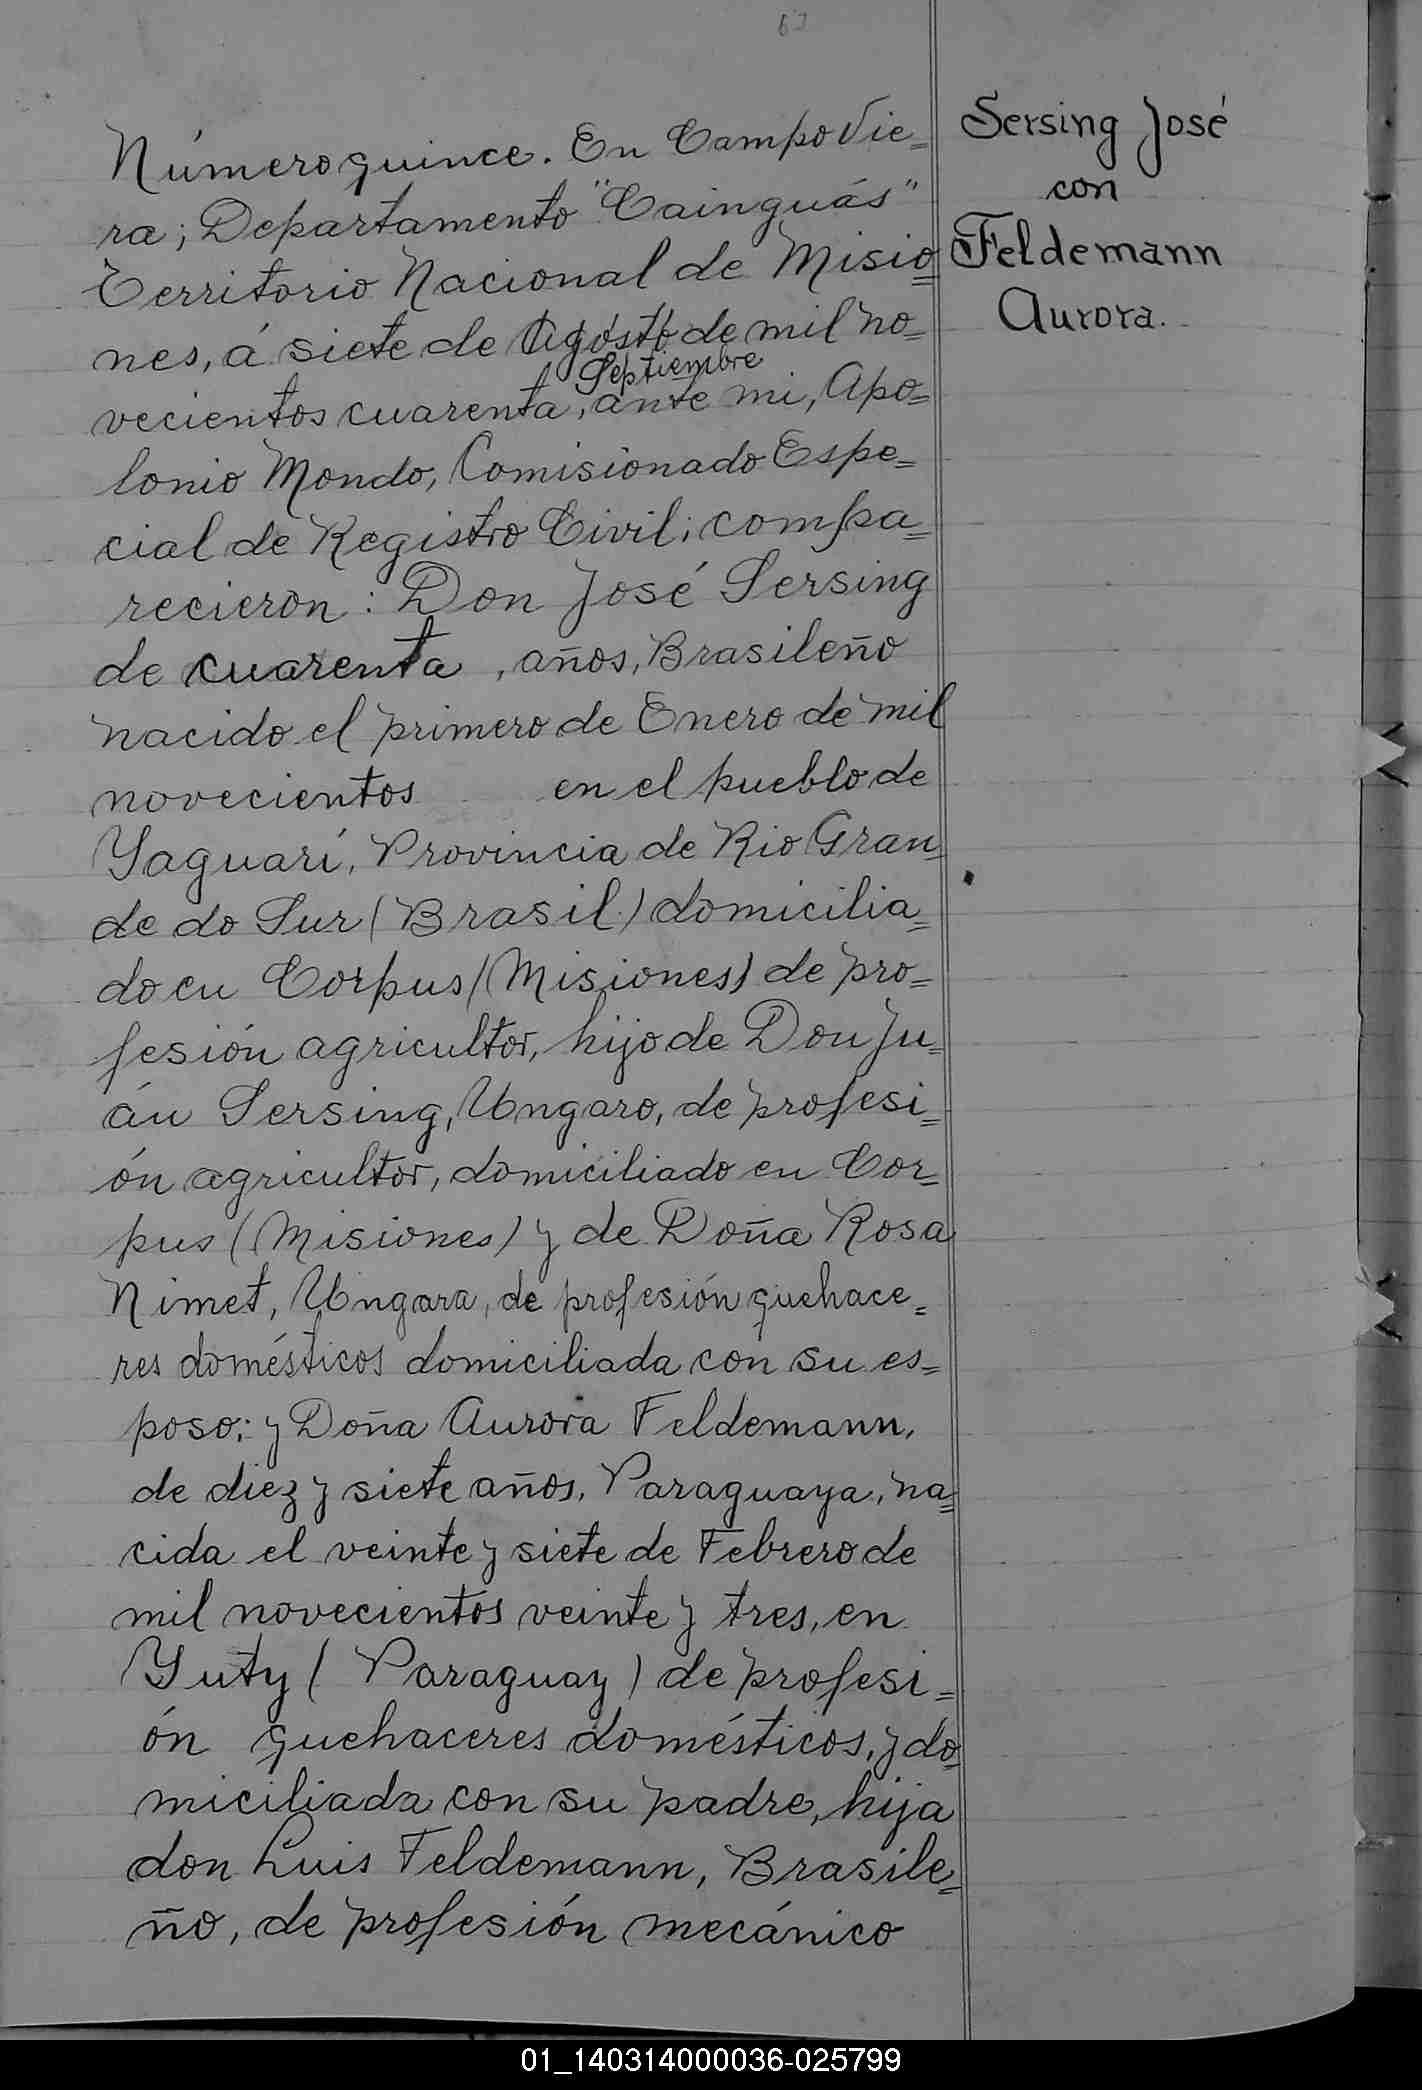 67
Sersing José
con
Feldemann
Aurora.
Número quince. En Campo Vie=
ra; Departamento "Cainguás"
Territorio Nacional de Misio=
nes, á siete de Agosto de mil no=
Septiembre
vecientos cuarenta, ante mi, Apo=
lonio Mondo, Comisionado Espe=
cial de Registro Civil; compa=
recieron: Don José Sersing
de cuarenta, años, Brasileño
nacido el primero de Enero de mil
novecientos en el pueblo de
Yaguarí, Provincia de Rio Gran=
de do Sur (Brasil) domicilia=
do en Corpus (Misiones) de pro=
fesión agricultor, hijo de Don Ju=
án Sersing, Ungaro, de profesi=
ón agricultor, domiciliado en Cor=
pus (Misiones) y de Doña Rosa
Nimet, Ungara, de profesión quehace=
res domésticos domiciliada con su es=
poso; y Doña Aurora Feldemann,
de diez y siete años, Paraguaya, na=
cida el veinte y siete de Febrero de
mil novecientos veinte y tres, en
Yuty (Paraguay) de profesi=
ón quehaceres domésticos, y do=
miciliada con su padre, hija
don Luis Feldemann, Brasile=
ño, de profesión mecánico
01_140314000036-025799